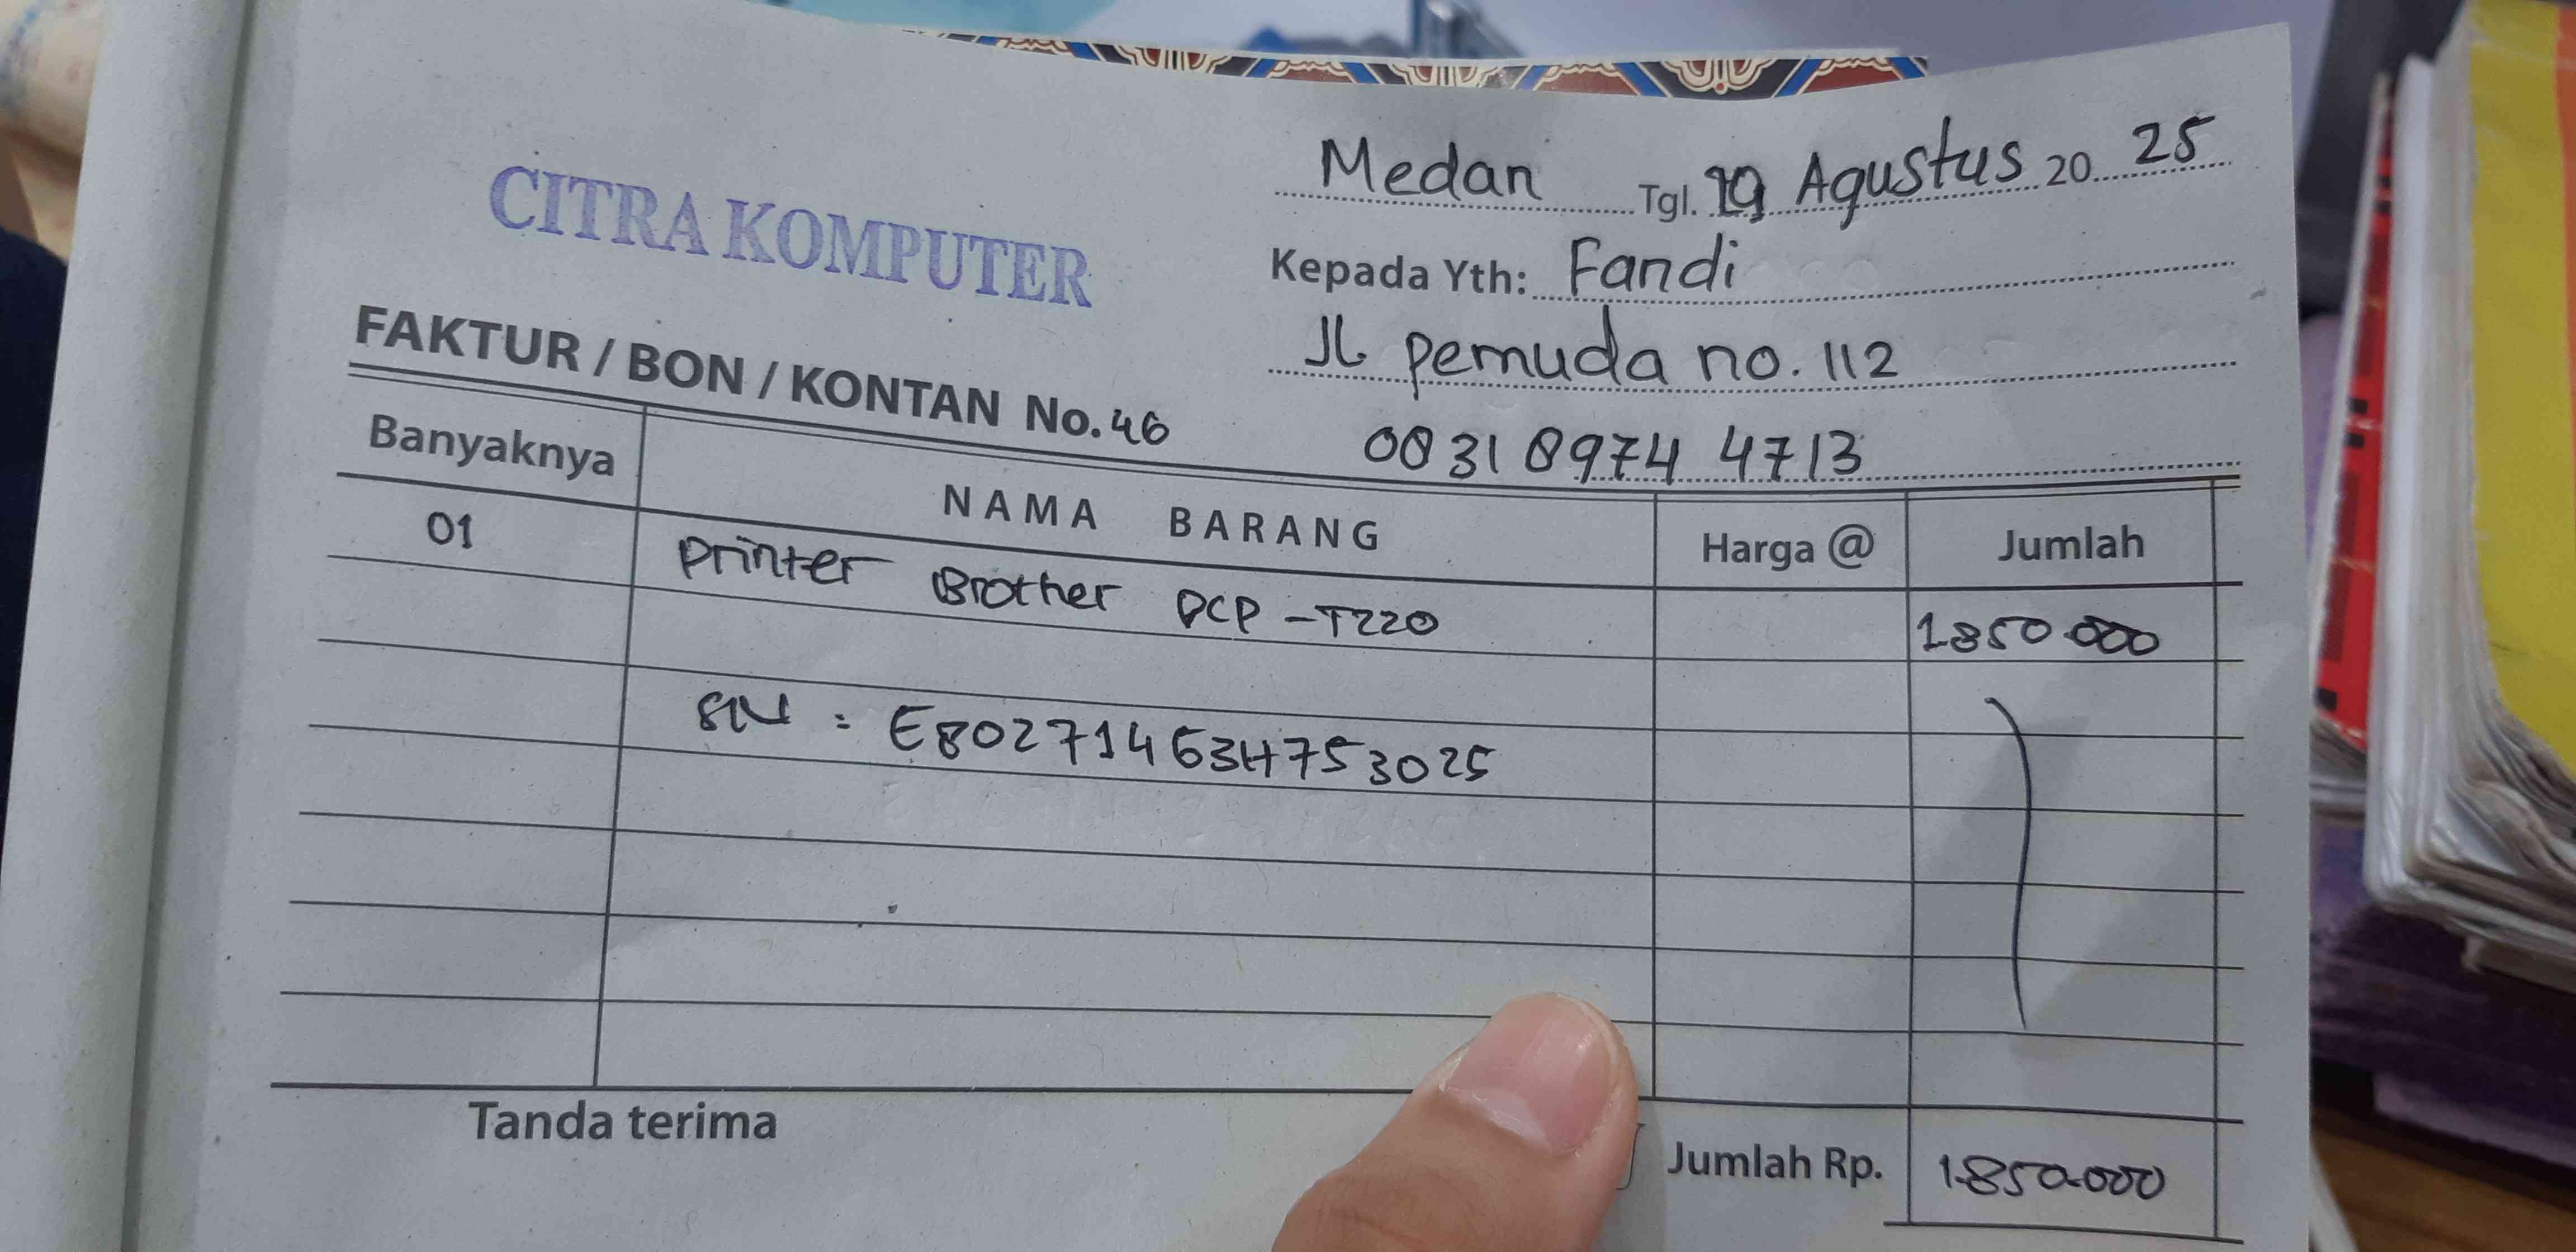 CITRA KOMPUTER
Medan Tgl. 29 Agustus 20 25
Kepada Yth: Fandi
Jl pemuda no. 112
0831 8974 4713
FAKTUR / BON / KONTAN No. 46
Banyaknya NAMA BARANG Harga @ Jumlah
01 Printer Brother DCP-T220 1.850.000
SN : E80271463H753025
Tanda terima
Jumlah Rp. 1.850.000